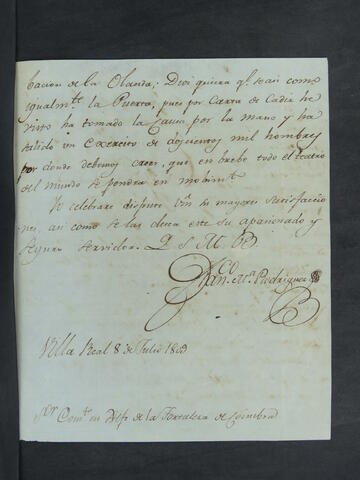 bacion de la Olanda. Dios quiera qe. sean como
igualmte. la Puerta, pues por Carta de Cadiz he
visto ha tomado la Causa por la mano y ha
salido un Exercito de doscientos mil hombres
por donde debemos creer, que en brebe todo el teatro
del mundo se pondra en mobimto.
Yo celebrare disfrute Vm. su mayores satisfaccio
nes, asi como se las desea este su apasionado y
Seguro Servidor. Q S M B
Franco. Ma. Rodriguez
Villa Real 8 de Julio 1809
Sor. Comte. en de la Fortaleza de